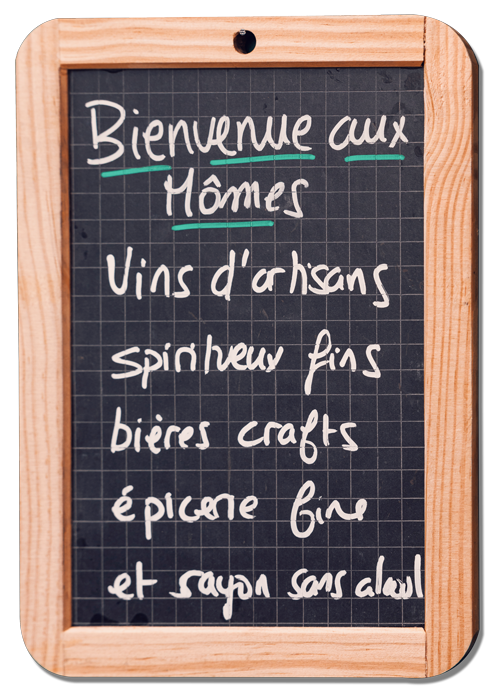 Bienvenue aux
Mômes
Vins d'artisans
spiritueux fins
bières crafts
épicerie fine
et rayon sans alcool